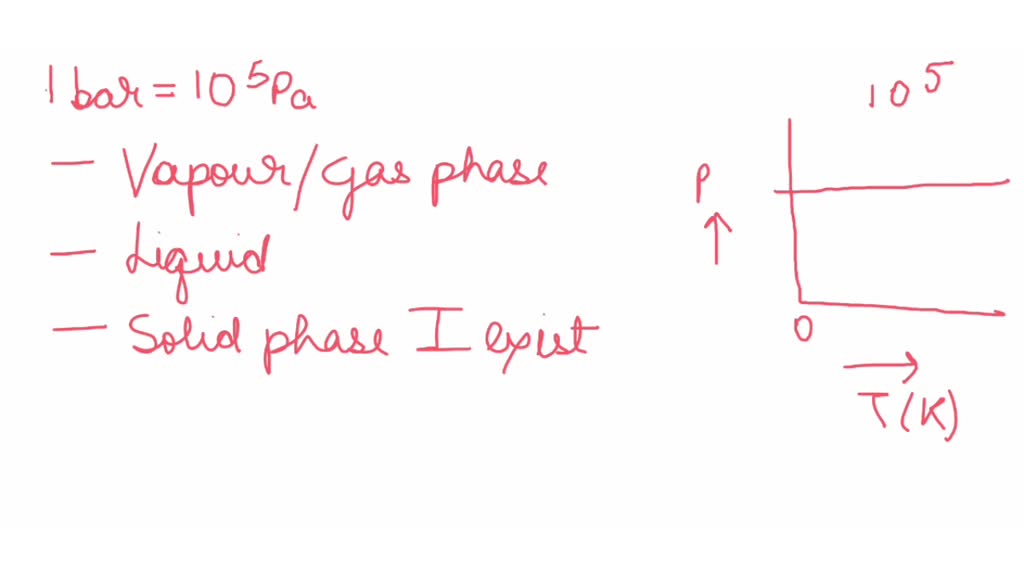 1 bar = 10⁵Pa
— Vapour/gas phase
— Liquid
— Solid phase I exist
10⁵
P
↑
0
→
T(K)